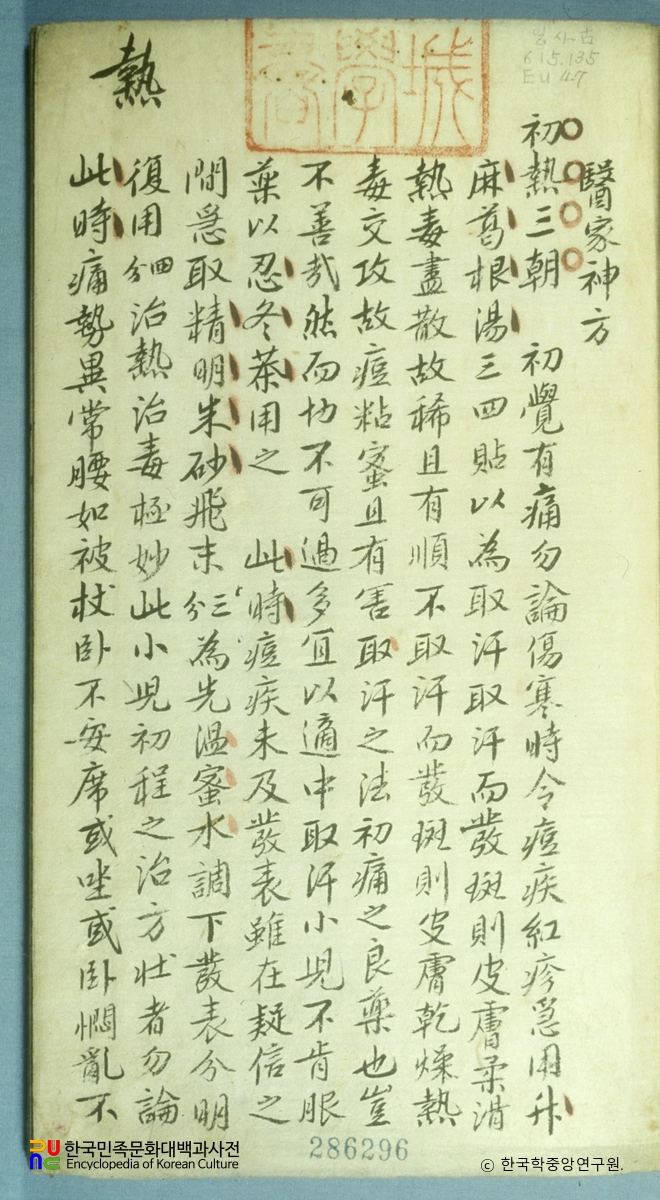 醫家神方
初熱三朝 初覺有痛勿論傷寒時令痘疾紅疹急用升
麻葛根湯三四貼以為取汗取汗而發斑則皮膚柔滑
熱毒盡散故稀且有順不取汗而發斑則皮膚乾燥熱
毒交攻故痘粘蜜且有害取汗之法初痛之良藥也豈
不善哉然而切不可過多宜以適中取汗小兒不肯服
藥以忍冬茶用之 此時痘疾未及發表雖在疑信之
間急取精明朱砂飛末三分為先温蜜水調下發表分明
復用四分治熱治毒極妙此小兒初程之治方壯者勿論
此時痛勢異常腰如被杖卧不安席或唑或卧悶亂不
熱
城
學
일사古
615.135
EU47
286296
한국민족문화대백과사전
Encyclopedia of Korean Culture
© 한국학중앙연구원.